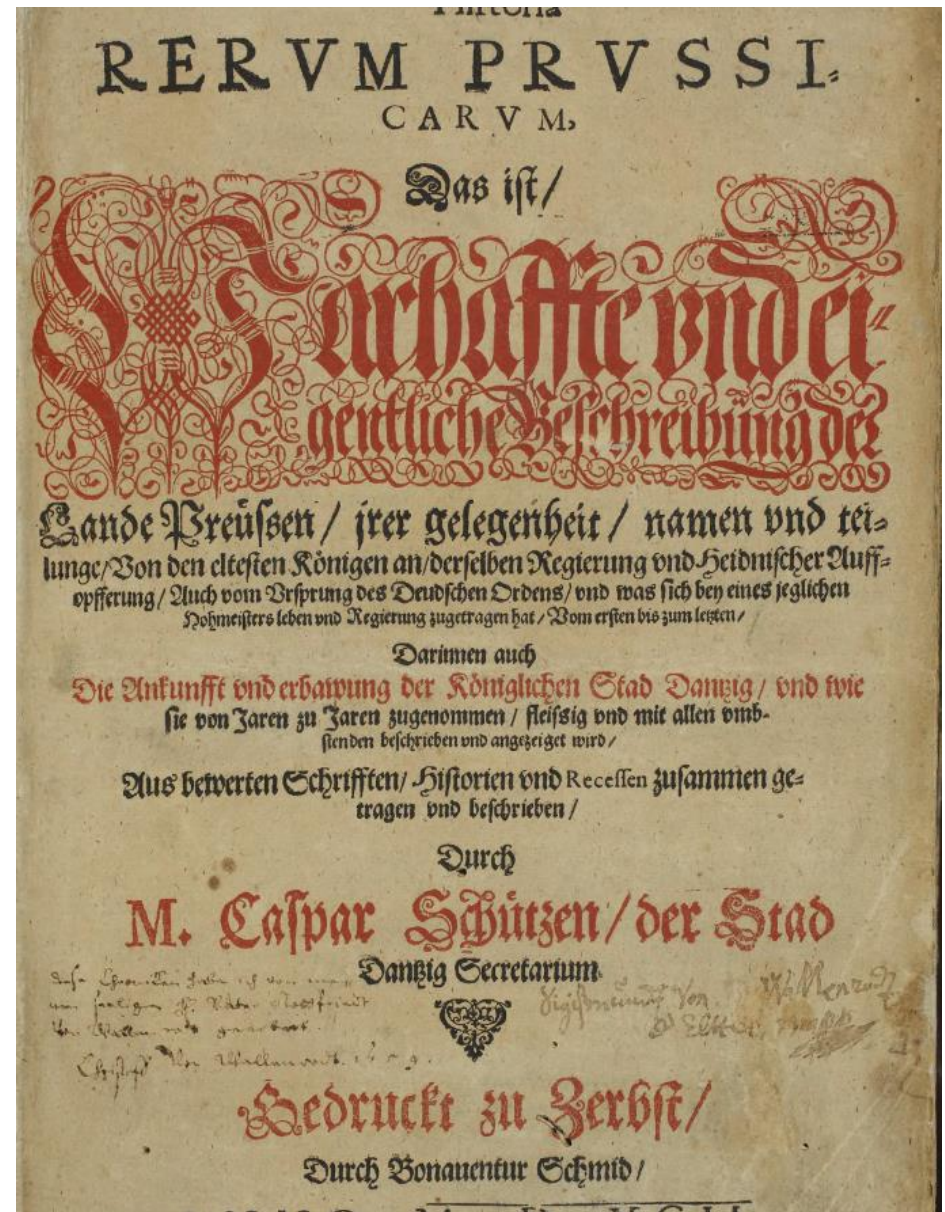 Historia
RERVM PRVSSI-
CARVM,
Das ist/
Warhaffte vnd ei-
gentliche Beschreibung der
Lande Preüssen/ jrer gelegenheit/ namen vnd tei-
lunge/Von den eltesten Königen an/derselben Regierung vnd Heidnischer Auff-
opfferung/ Auch vom Vrsprung des Deudschen Ordens/ vnd was sich bey eines jeglichen
Hohmeisters leben vnd Regierung zugetragen hat/ Vom ersten bis zum letzten/
Darinnen auch
Die Ankunfft vnd erbawung der Königlichen Stad Dantzig/ vnd wie
sie von Jaren zu Jaren zugenommen/ fleissig vnd mit allen vmb-
stenden beschrieben vnd angezeiget wird/
Aus bewerten Schrifften/ Historien vnd Recessen zusammen ge-
tragen vnd beschrieben/
Durch
M. Caspar Schützen/ der Stad
Dantzig Secretarium.
Christoff Von Wallenrodt.
Gedruckt zu Zerbst/
Durch Bonauentur Schmid/